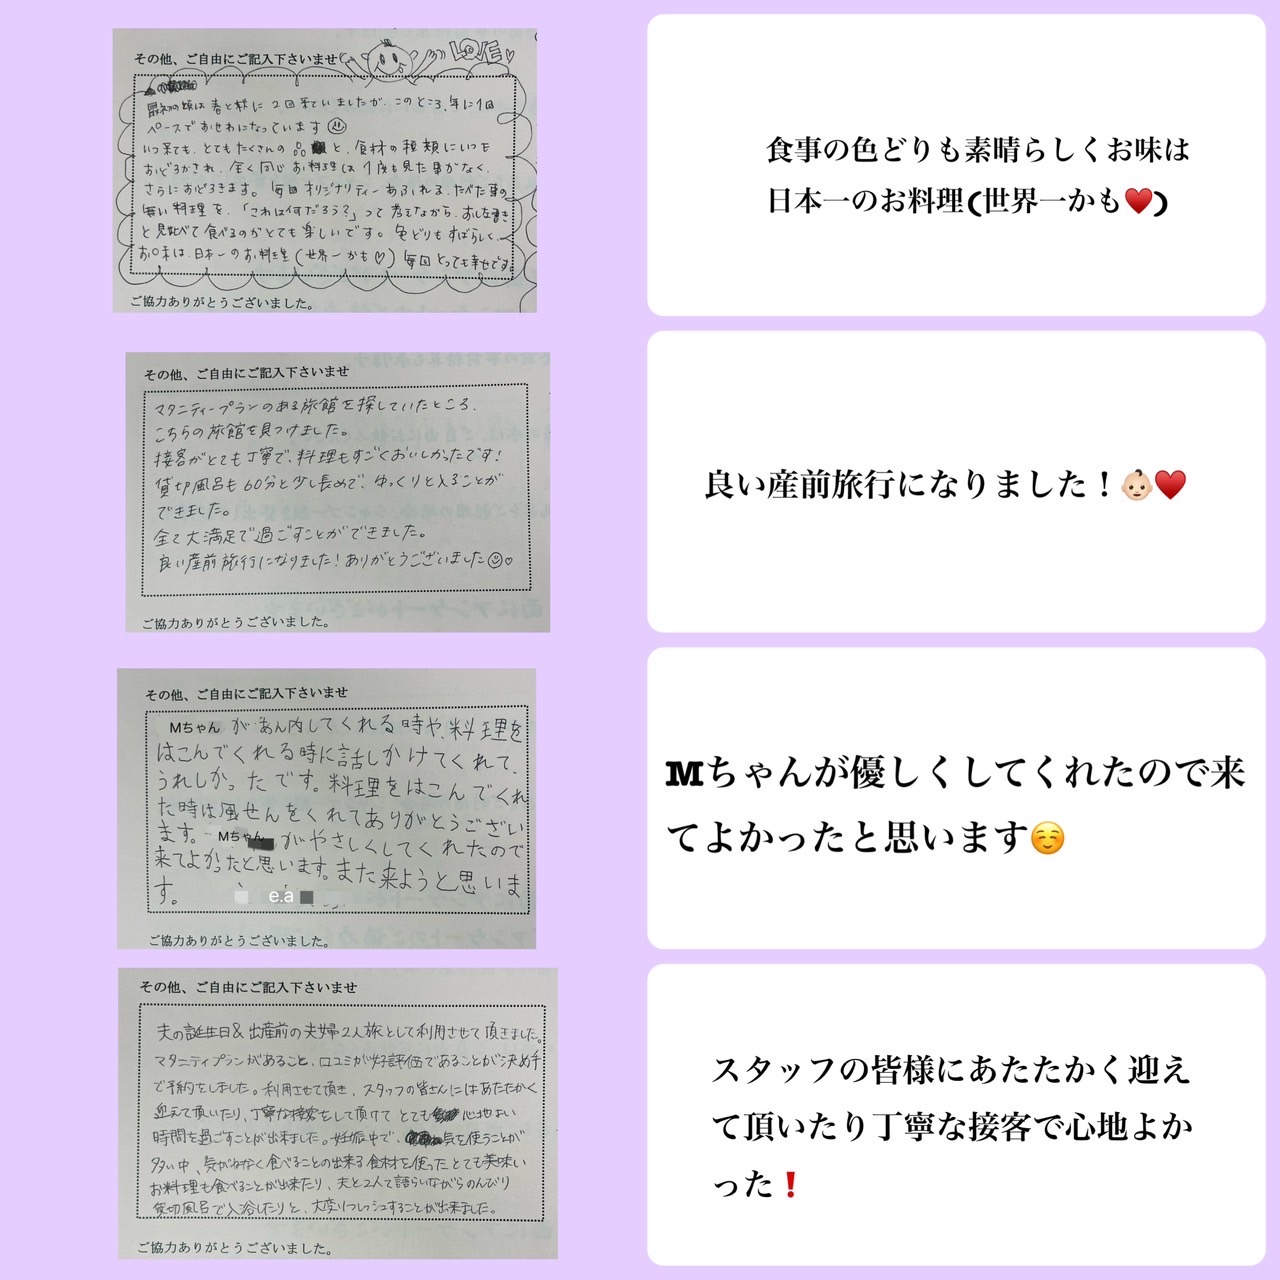 その他、ご自由にご記入下さいませ
LOVE♡
最初の頃は春と秋に2回来ていましたが、このところ、年に1回
ペースでおせわになっています☺
いつ来ても、とてもたくさんの と、食材の種類にいつも
おどろかされ、全く同じお料理は1度も見た事がなく、
さらにおどろきます。毎回オリジナリティーあふれる、たべた事の
無い料理を、「これは何だろう?」って考えながら、おしながき
と見比べて食べるのがとても楽しいです。色どりもすばらしく、
お味は、日本一のお料理(世界一かも♡)毎回とっても幸せです。
ご協力ありがとうございました。
食事の色どりも素晴らしくお味は
日本一のお料理(世界一かも♥️)
その他、ご自由にご記入下さいませ
マタニティープランのある旅館を探していたところ、
こちらの旅館を見つけました。
接客がとても丁寧で、料理もすごくおいしかったです!
貸切風呂も60分と少し長めで、ゆっくりと入ることが
できました。
全て大満足で過ごすことができました。
良い産前旅行になりました!ありがとうございました☺♡
ご協力ありがとうございました。
良い産前旅行になりました!👶🏻♥️
その他、ご自由にご記入下さいませ
Mちゃん があん内してくれる時や、料理を
はこんでくれる時に話しかけてくれて、
うれしかったです。料理をはこんでくれ
た時は風せんをくれてありがとうござい
ます。Mちゃん がやさしくしてくれたので
来てよかったと思います。また来ようと思いま
す。 e.a
ご協力ありがとうございました。
Mちゃんが優しくしてくれたので来
てよかったと思います☺️
その他、ご自由にご記入下さいませ
夫の誕生日&出産前の夫婦2人旅として利用させて頂きました。
マタニティプランがあること、口コミが好評価であることが決め手
で予約をしました。利用させて頂き、スタッフの皆さんにはあたたかく
迎えて頂いたり、丁寧な接客をして頂けてとても 心地よい
時間を過ごすことが出来ました。妊娠中で、 気を使うことが
多い中、気がねなく食べることの出来る食材を使ったとても美味い
お料理も食べることが出来たり、夫と2人で語らいながらのんびり
貸切風呂で入浴したりと、大変リフレッシュすることが出来ました。
ご協力ありがとうございました。
スタッフの皆様にあたたかく迎え
て頂いたり丁寧な接客で心地よか
った❗